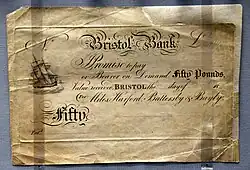 Bristol Bank. £
I Promise to pay
or Bearer on Demand Fifty Pounds,
Value received BRISTOL the day of 18
For Miles, Harford, Battersby & Bayly.
Fifty